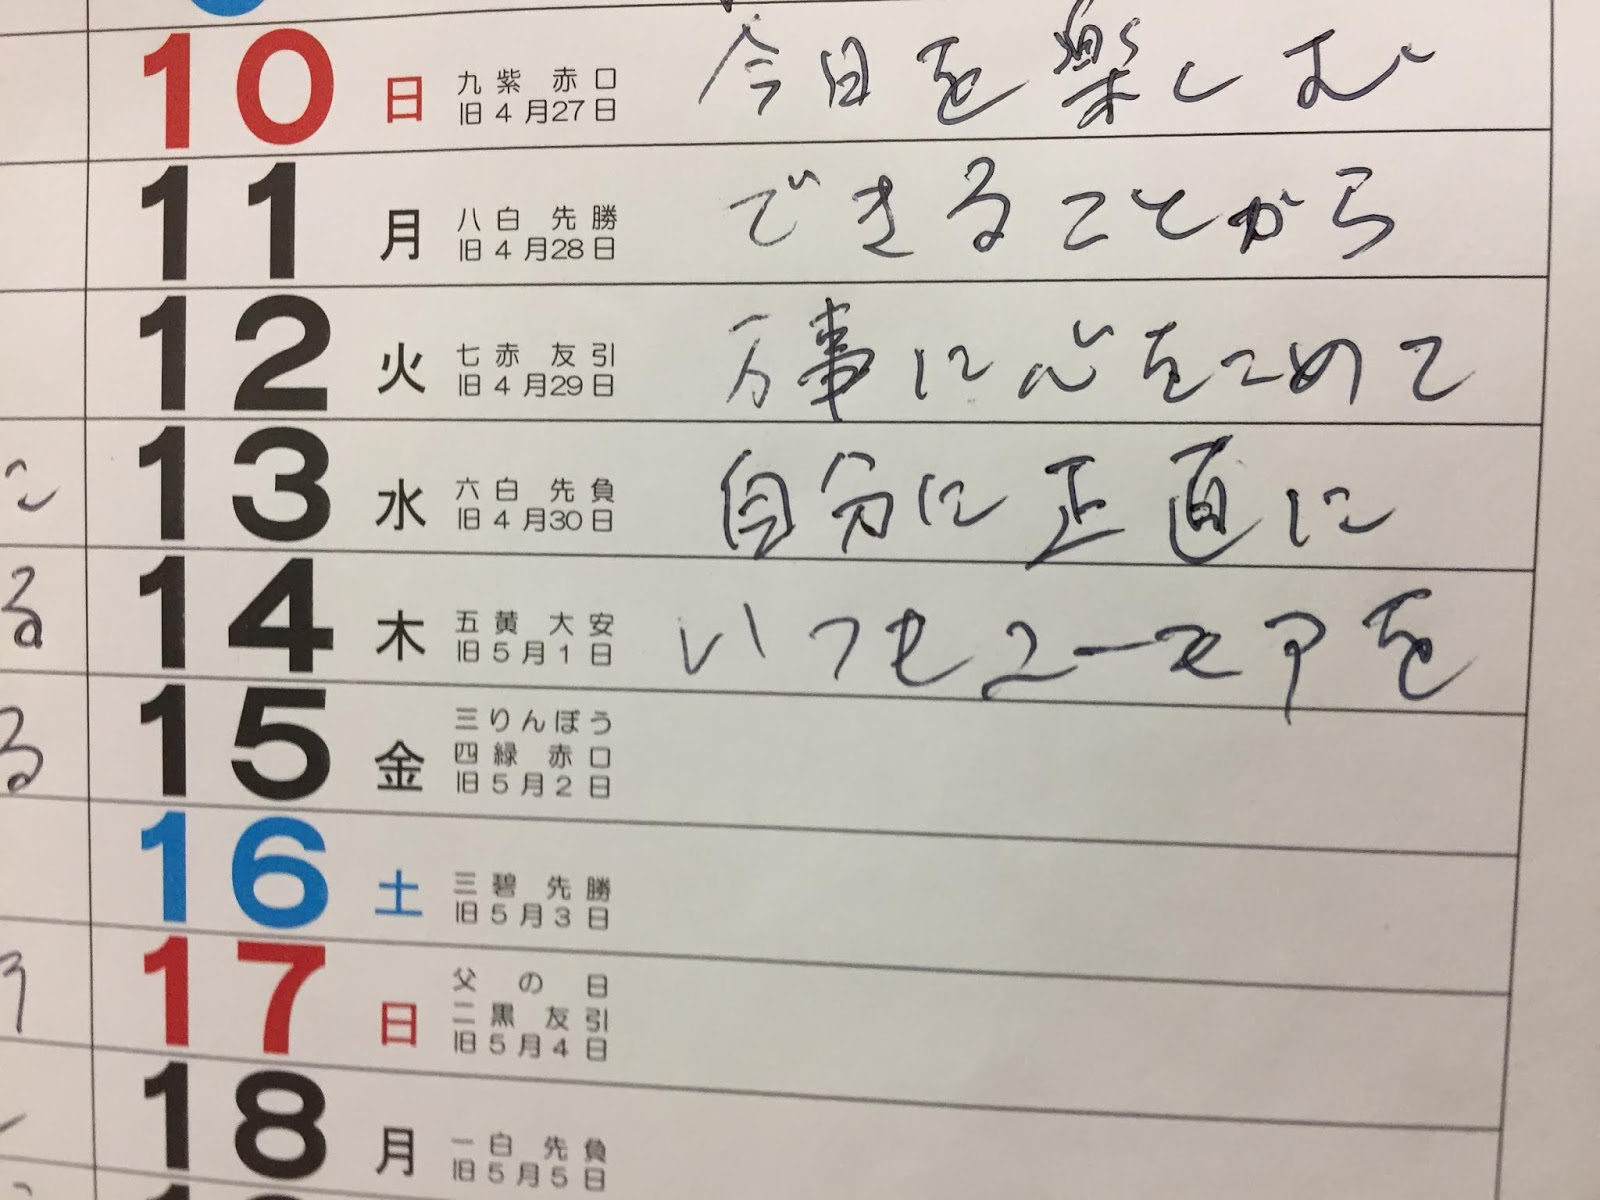 10 日 九紫 赤口 今日を楽しむ
旧4月27日
11 月 八白 先勝 できることから
旧4月28日
12 火 七赤 友引 万事に心をこめて
旧4月29日
13 水 六白 先負 自分に正直に
旧4月30日
14 木 五黄 大安 いつもユーモアを
旧5月1日
15 金 三りんぼう
四緑 赤口
旧5月2日
16 土 三碧 先勝
旧5月3日
17 日 父の日
二黒 友引
旧5月4日
18 月 一白 先負
旧5月5日
に
る
る